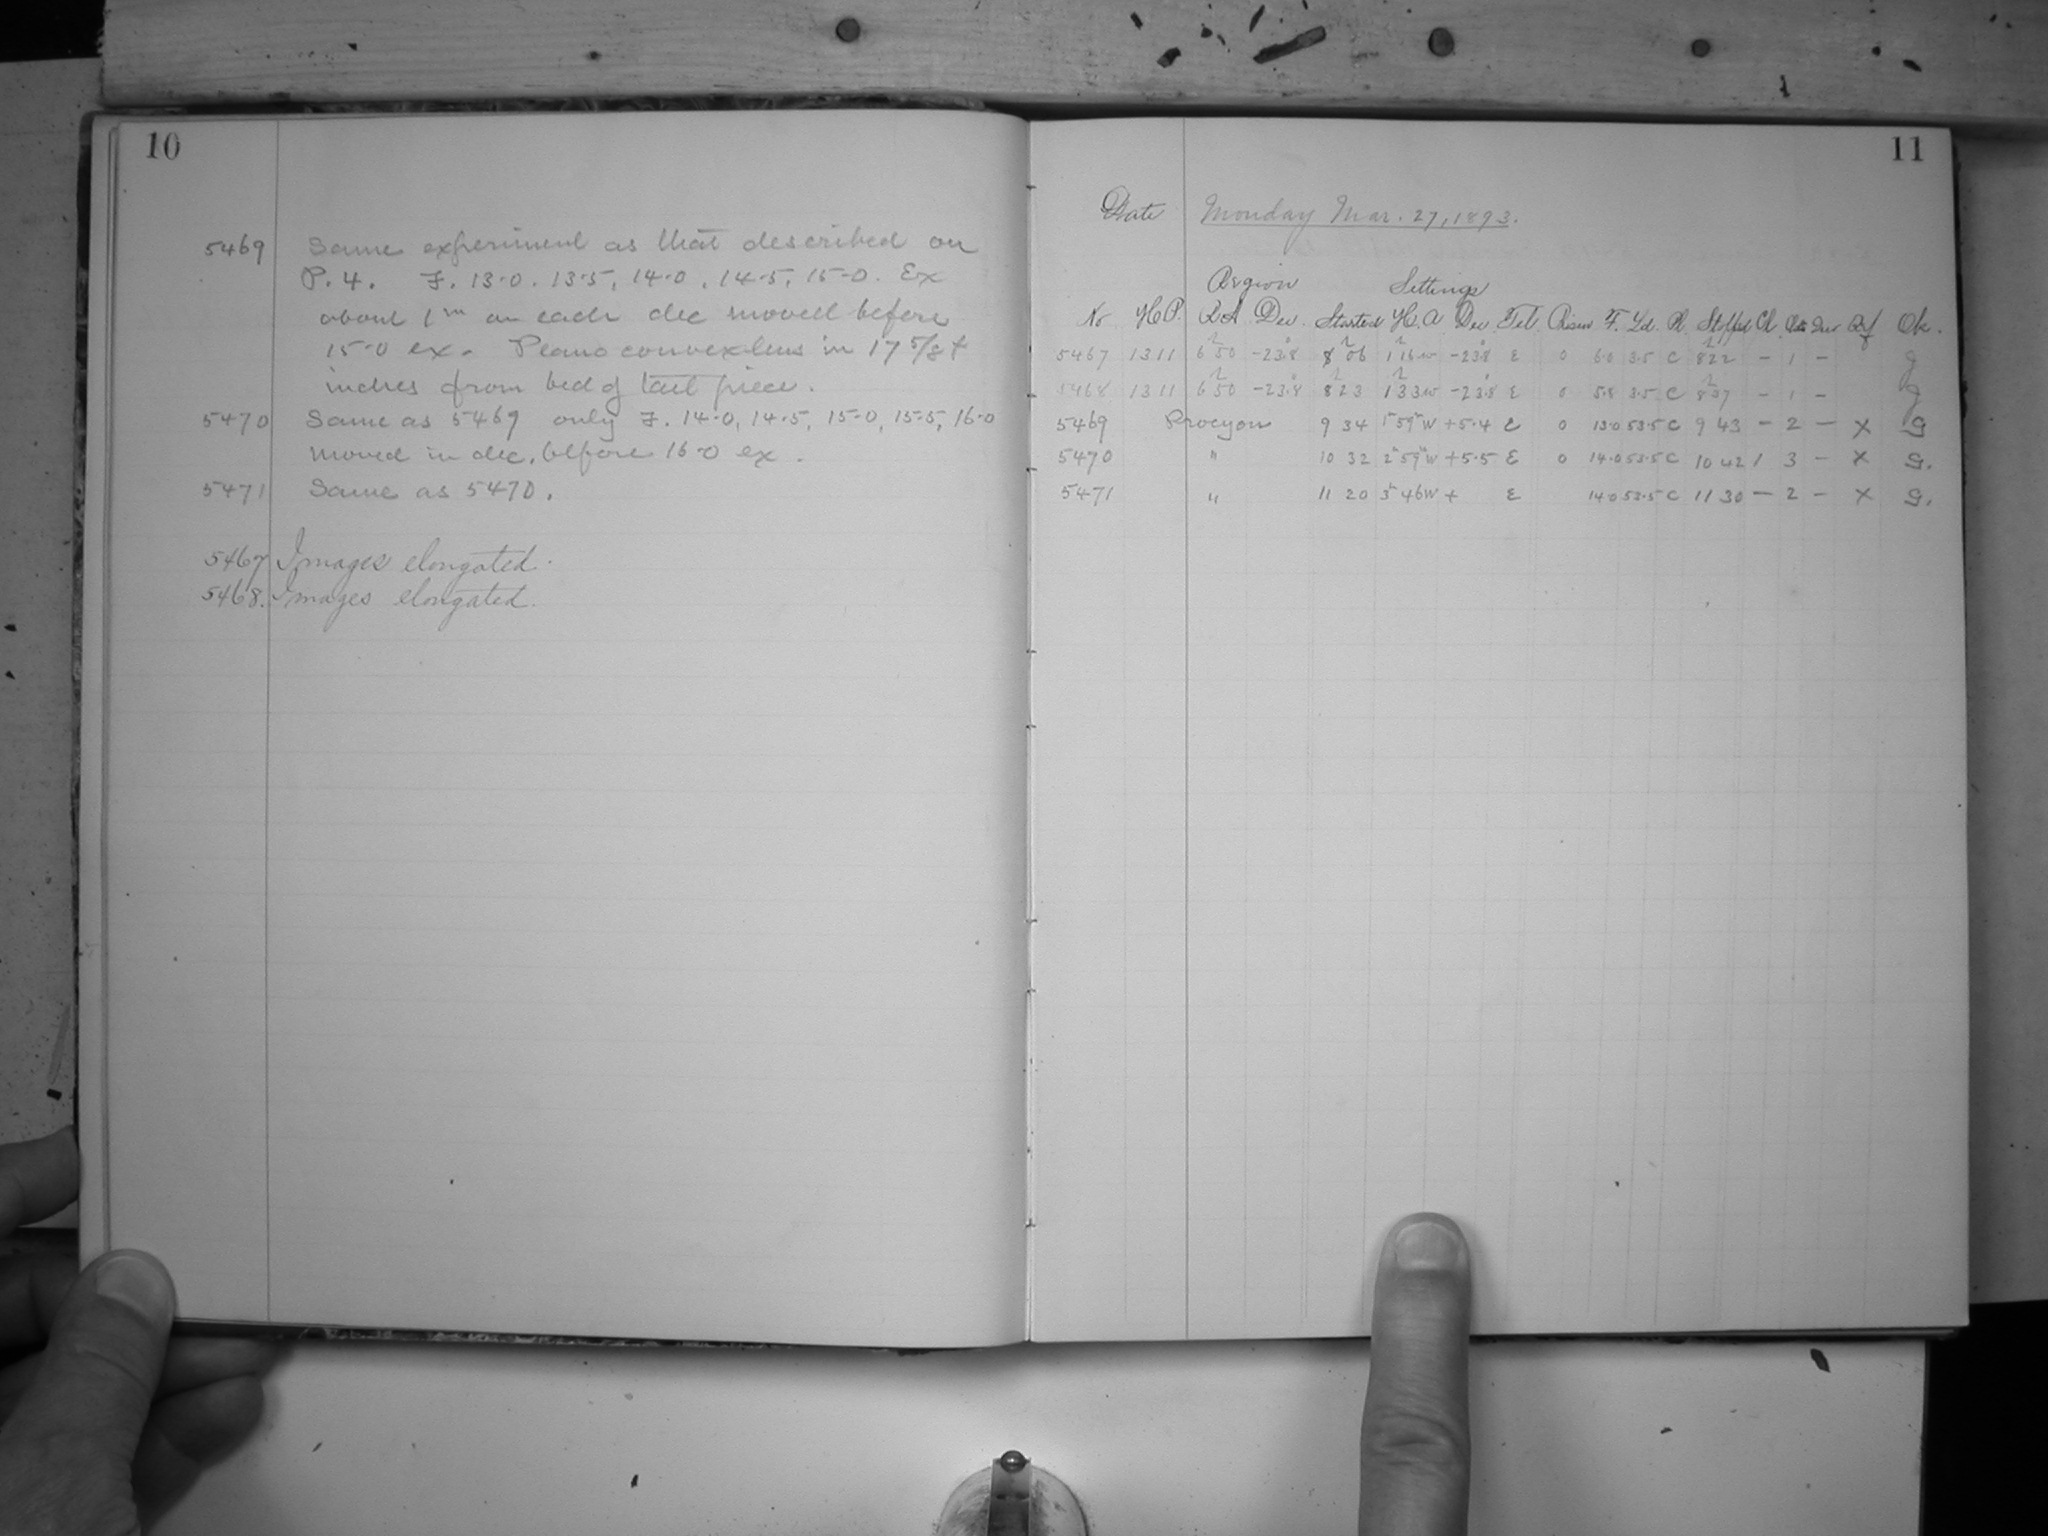 10
5469 Same experiment as that described on
P. 4. F. 13.0. 13.5, 14.0, 14.5, 15.0. Ex
about 1m on each dec moved before
15.0 ex. Plano convex lens in 17 5/8 +
inches from bed of tail piece.
5470 Same as 5469 only F. 14.0, 14.5, 15.0, 15.5, 16.0
moved in dec. before 16.0 ex.
5471 Same as 5470.
5467 Images elongated.
5468. Images elongated.
11
Date Monday Mar. 27, 1893.
Region Settings
No H.P. R.A Dec. Started H.A Dec Tel. F. Pl. Stopped Cl. Ok.
5467 1311 6h50 -23°.8 8h06 1h16w -23°.8 E 0 6.0 3.5 C 8h22 - 1 - g
5468 1311 6h50 -23°.8 8h23 1h33w -23°.8 E 0 5.8 3.5 C 8h37 - 1 - g
5469 Procyon 9 34 1h59mW +5.4 E 0 13.0 53.5 C 9 43 - 2 - X G
5470 " 10 32 2h59mW +5.5 E 0 14.0 53.5 C 10 42 1 3 - X G.
5471 " 11 20 3h46W + E 14.0 53.5 C 11 30 - 2 - X G.